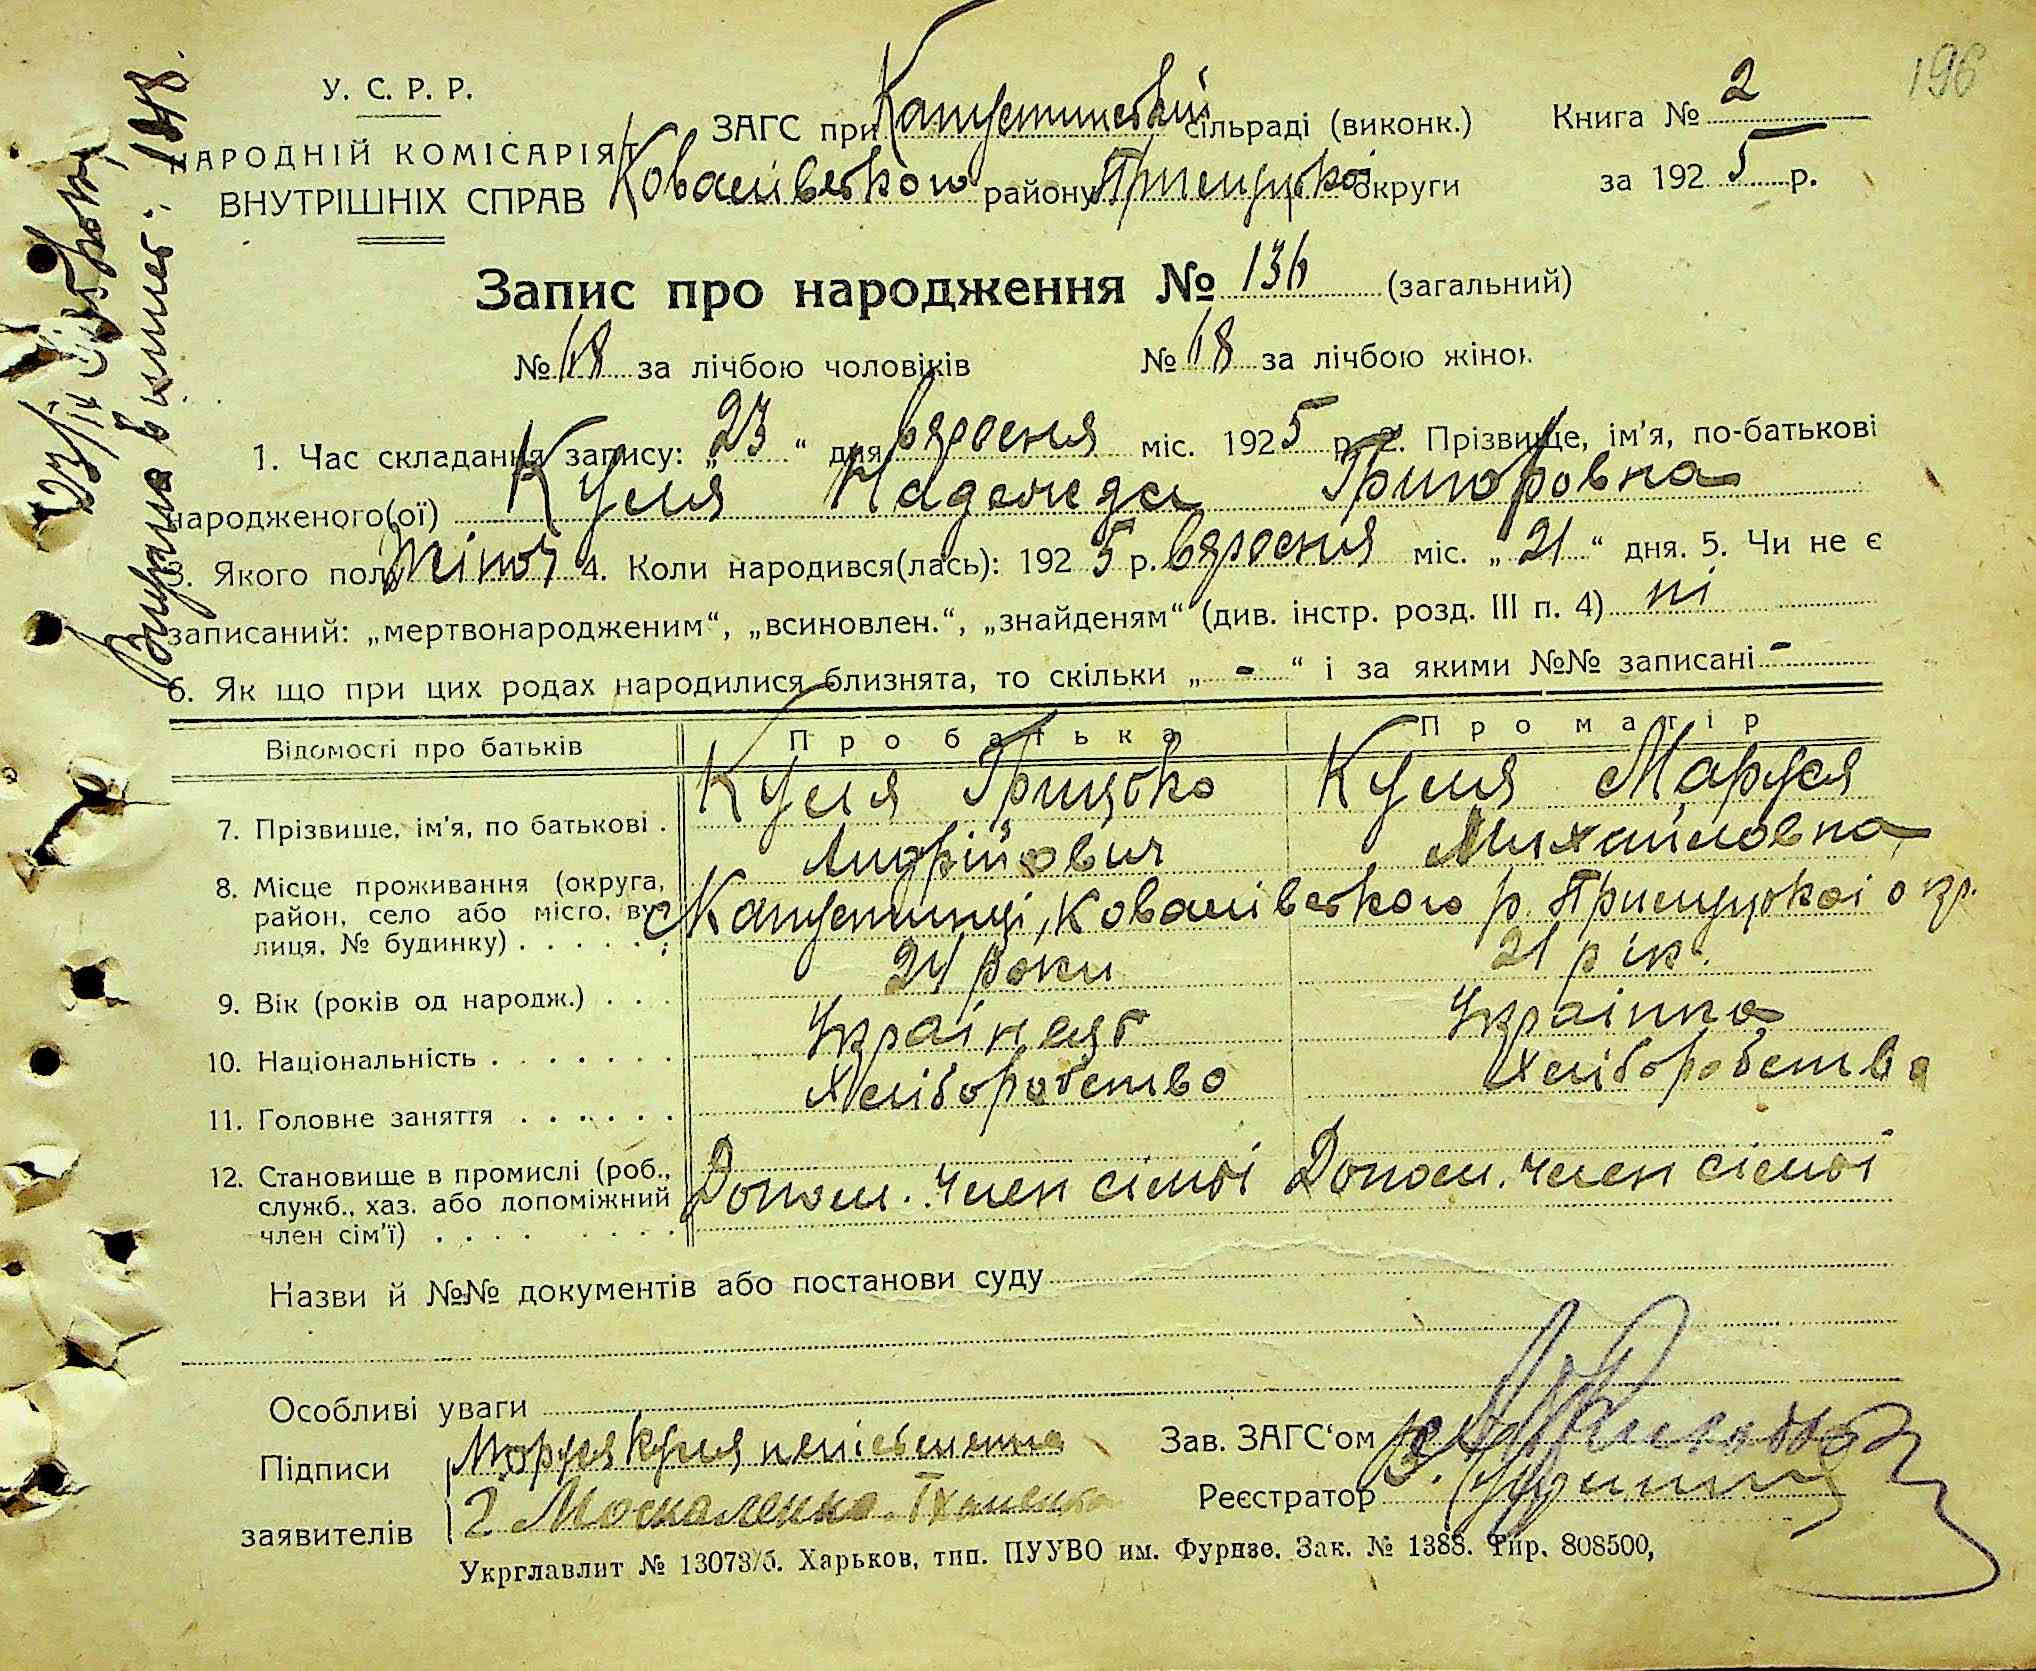 196
У. С. Р. Р.
НАРОДНІЙ КОМІСАРІЯТ
ВНУТРІШНІХ СПРАВ
ЗАГС при Капустинській сільраді (виконк.)
Ковалівського району Прилуцької округи
Книга № 2
за 1925 р.
Запис про народження № 136 (загальний)
№ 68 за лічбою чоловіків № 68 за лічбою жінок
1. Час складання запису: „23“ дня вересня міс. 1925 р. 2. Прізвище, ім'я, по-батькові
народженого(ої) Куля Надежда Григоровна
3. Якого полу жіноч 4. Коли народився(лась): 1925 р. вересня міс. „21“ дня. 5. Чи не є
записаний: „мертвонародженим“, „всиновлен.“, „знайденям“ (див. інстр. розд. III п. 4) ні
6. Як що при цих родах народилися близнята, то скільки „-“ і за якими №№ записані -
Відомості про батьків Про батька Про матір
7. Прізвище, ім'я, по батькові . Куля Грицько Андрійович Куля Маруся Михайловна
8. Місце проживання (округа, район, село або місто, вулиця, № будинку) . . . . . с Капустинці, Ковалівського р. Прилуцької окр.
9. Вік (років од народж.) . . . 24 роки 21 рік.
10. Національність . . . . . . . Українець Українка
11. Головне заняття . . . . . . Хліборобство Хліборобства
12. Становище в промислі (роб., служб., хаз. або допоміжний член сім'ї) . . . . . . . . Допом. член сімьі Допом. член сімьі
Назви й №№ документів або постанови суду
Особливі уваги
Підписи Маруся Куля неписьменна
заявителів 2 Москаленко
Зав. ЗАГС'ом
Реєстратор
Укрглавлит № 13073/б. Харьков, тип. ПУУВО им. Фрунзе. Зак. № 1388. Тир. 808500,